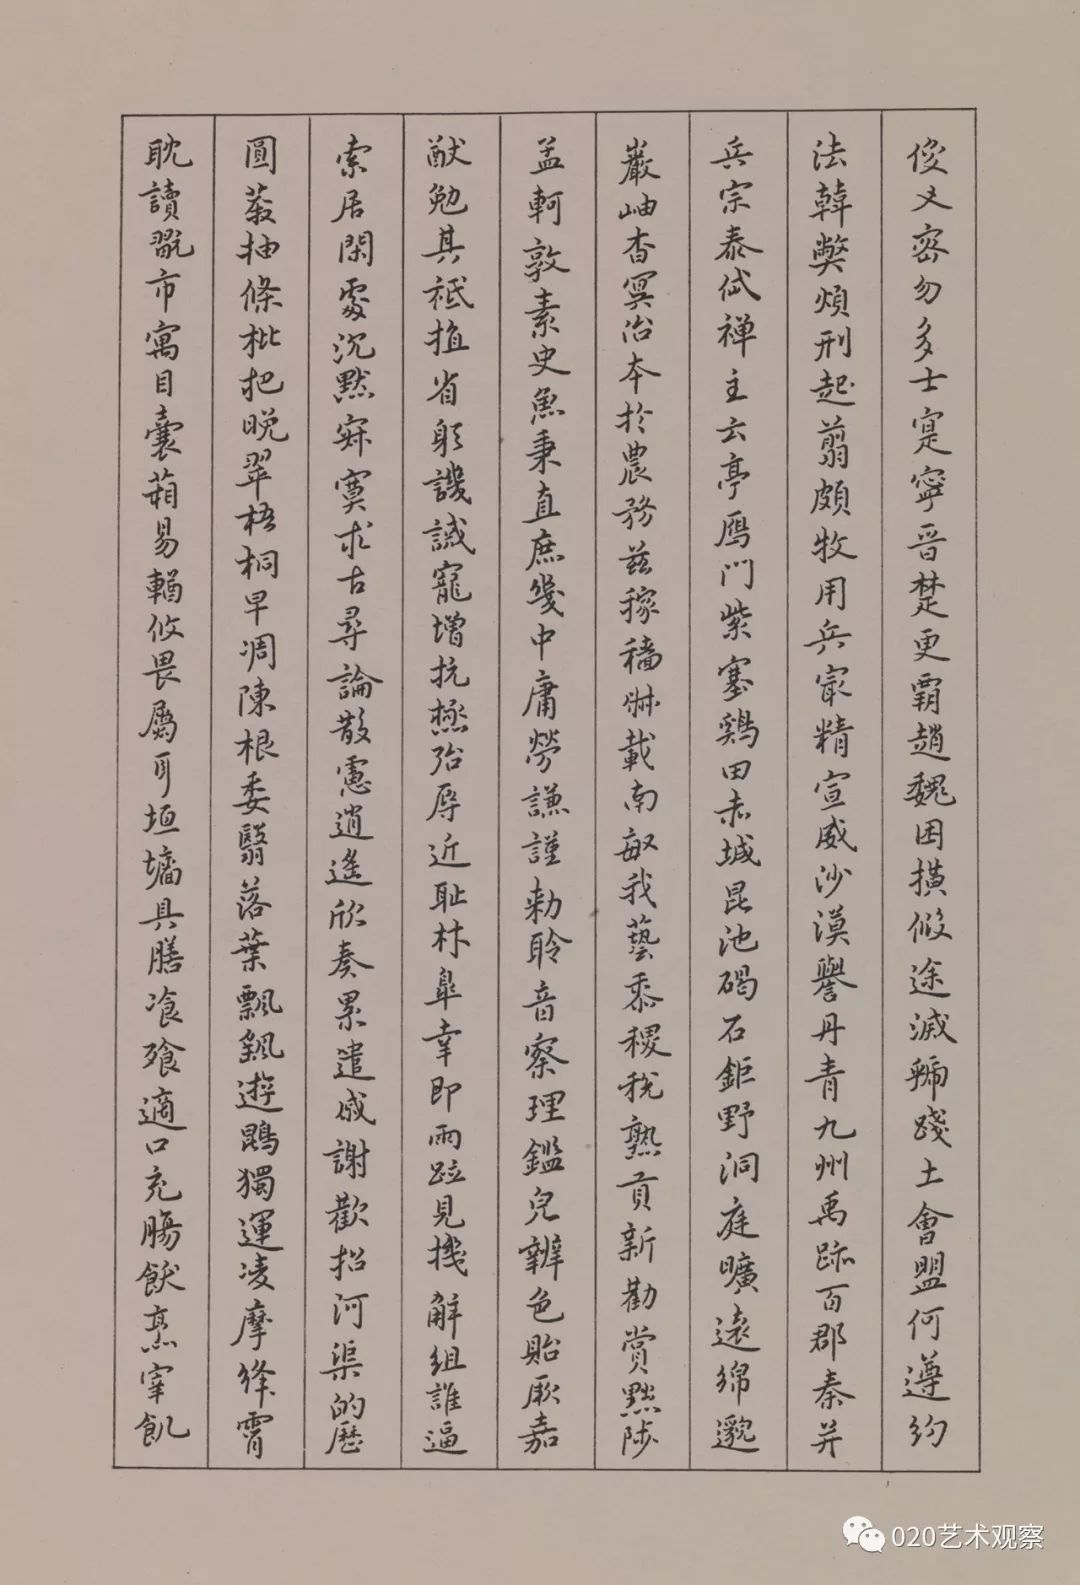 俊乂密勿多士寔寧晋楚更霸趙魏困横假途滅虢踐土會盟何遵約
法韓弊煩刑起翦頗牧用兵最精宣威沙漠譽丹青九州禹跡百郡秦并
兵宗泰岱禅主云亭鴈門紫塞鷄田赤城昆池碣石鉅野洞庭曠遠綿邈
巖岫杳冥治本於農務兹稼穡俶載南畝我藝黍稷税熟貢新勸賞黜陟
孟軻敦素史魚秉直庶幾中庸勞謙謹勑聆音察理鑑皃辨色貽厥嘉
猷勉其祗植省躬譏誡寵增抗極殆辱近耻林皐幸即兩疏見機解組誰逼
索居閑處沉默寂寞求古尋論散慮逍遥欣奏累遣慼謝歡招渠河的歷
圓莽抽條枇杷晚翠梧桐早凋陳根委翳落葉飄颻遊鵾獨運凌摩絳霄
耽讀翫市寓目囊箱易輶攸畏屬耳垣墻具膳飡飧適口充腸飫烹宰飢
020艺术观察